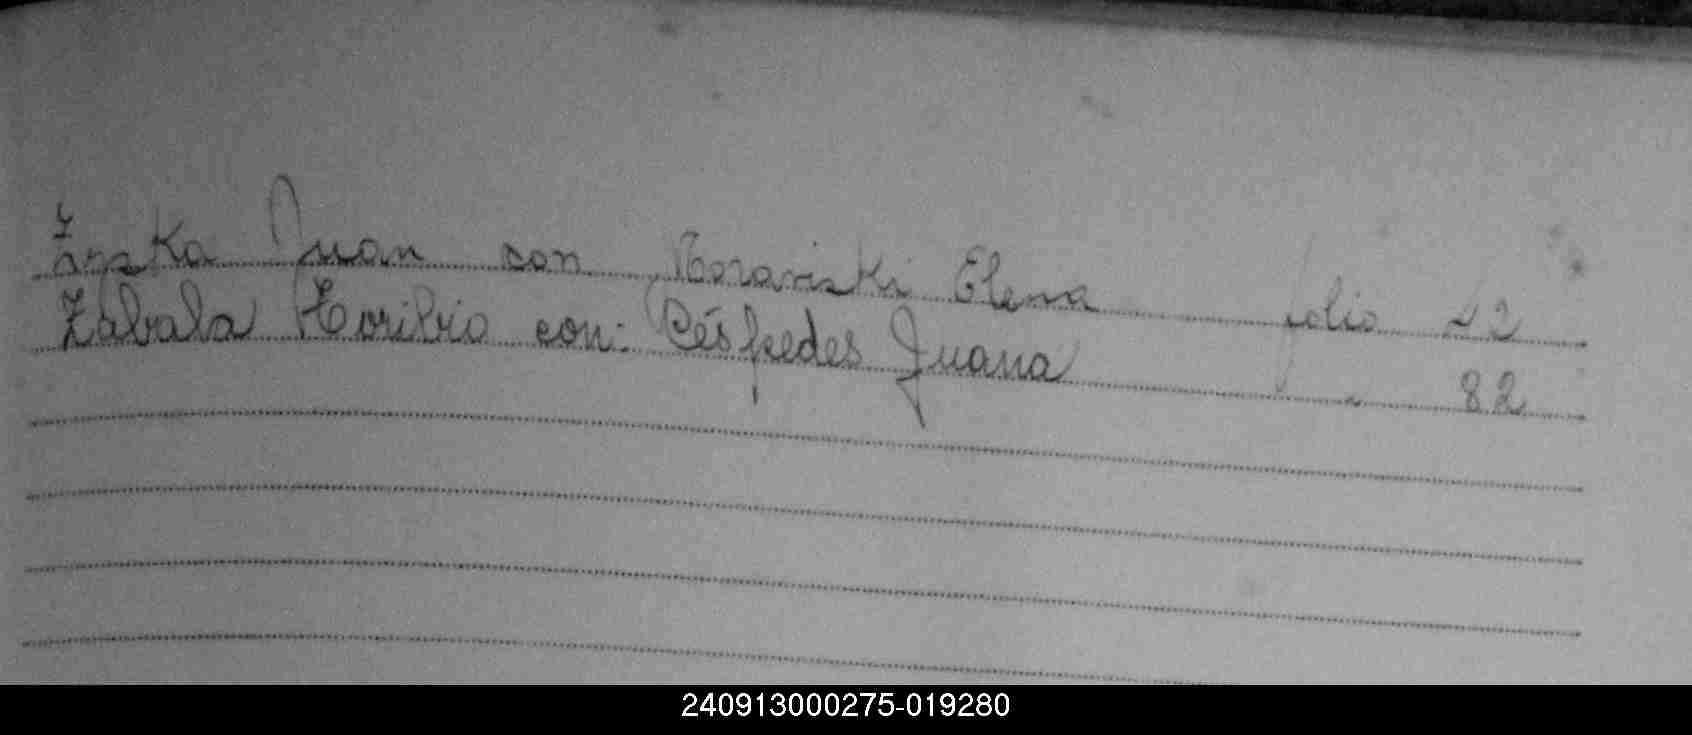 Juan con Elena folio 22
Zabala Toribio con: Céspedes Juana " 82
240913000275-019280